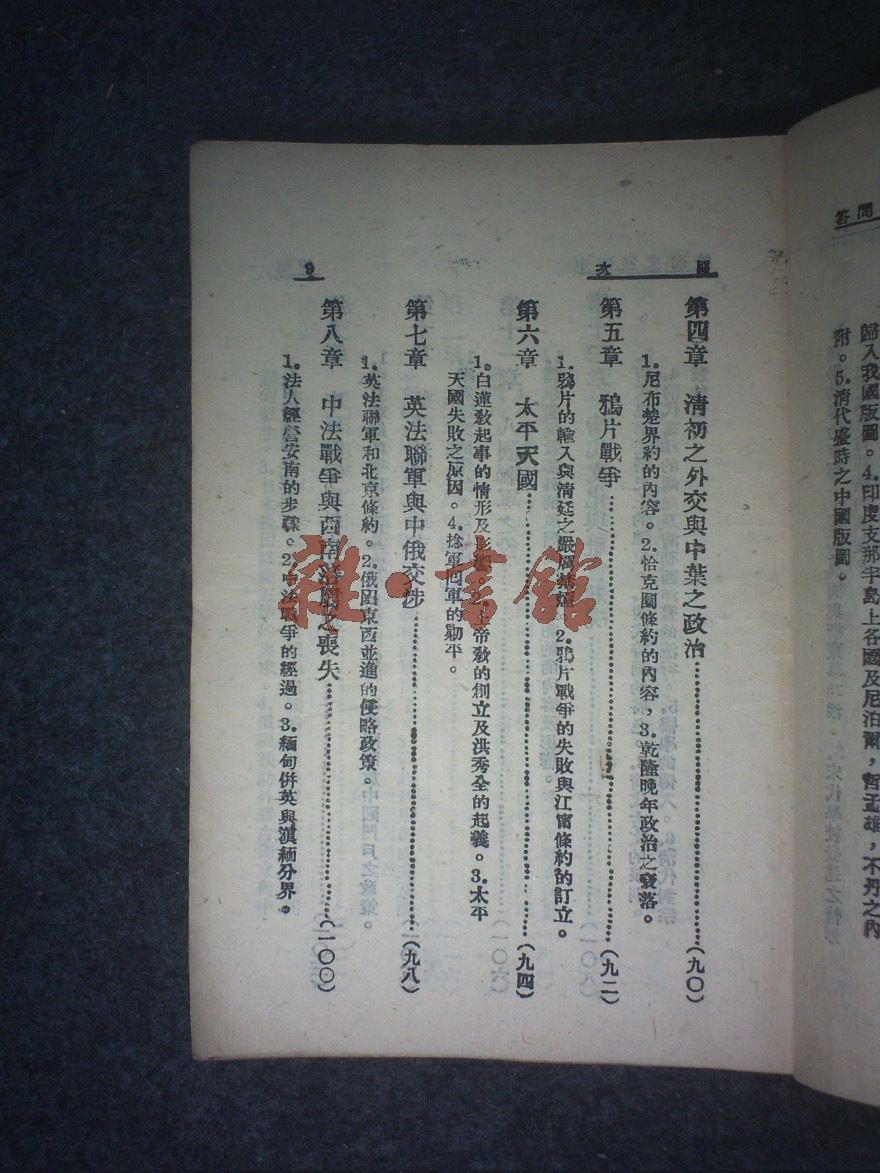 問答
歸入我國版圖。4.印度支那半島上各國及尼泊爾,哲孟雄,不丹之內
附。5.清代盛時之中國版圖。
目次
9
第四章 清初之外交與中葉之政治……(九〇)
1.尼布楚界約的內容。2.恰克圖條約的內容,3.乾隆晚年政治之衰落。
第五章 鴉片戰爭……(九二)
1.鴉片的輸入與清廷之嚴厲禁煙。2.鴉片戰爭的失敗與江甯條約的訂立。
第六章 太平天國……(九四)
1.白蓮教起事的情形及影響。2.上帝教的創立及洪秀全的起義。3.太平
天國失敗之原因。4.捻軍回軍的勦平。
第七章 英法聯軍與中俄交涉……(九八)
1.英法聯軍和北京條約。2.俄國東西並進的侵略政策。
第八章 中法戰爭與西南藩屬之喪失……(一〇〇)
1.法人經營安南的步驟。2.中法戰爭的經過。3.緬甸併英與滇緬分界。
雜·書館